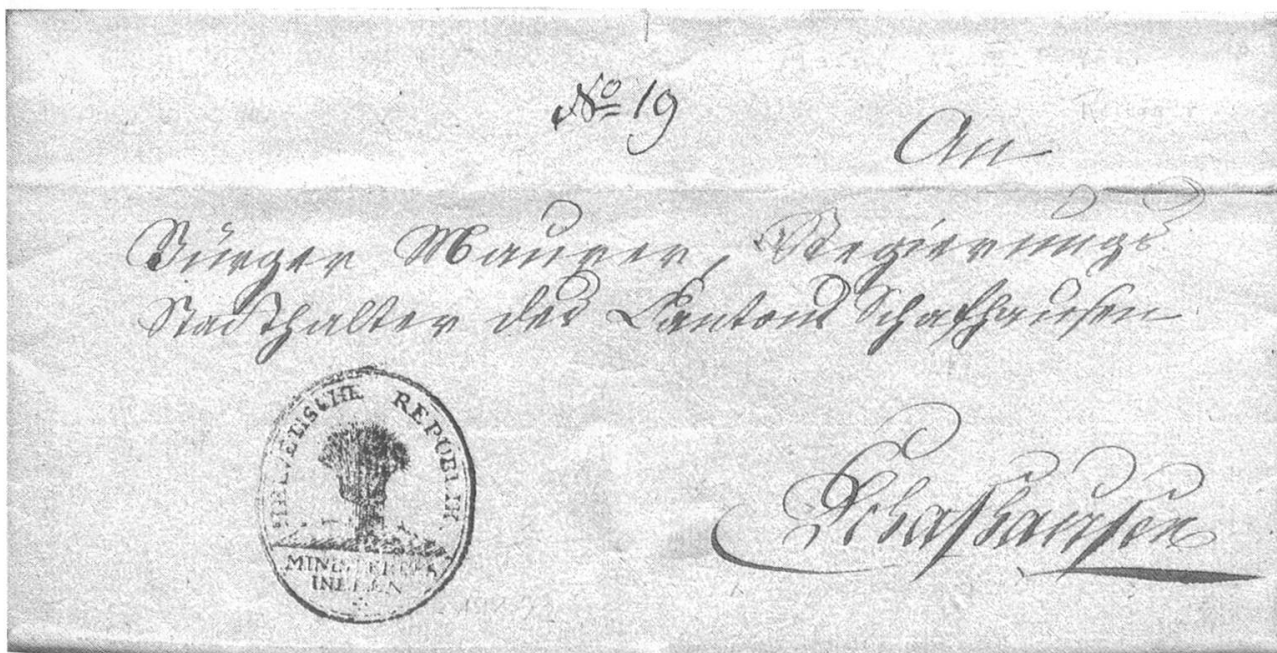 No 19
An
Bürger Maurer, Regierungs
Statthalter des Cantons Schafhausen
Schafhausen
HELVETISCHE REPUBLIK
MINISTER DES
INNERN